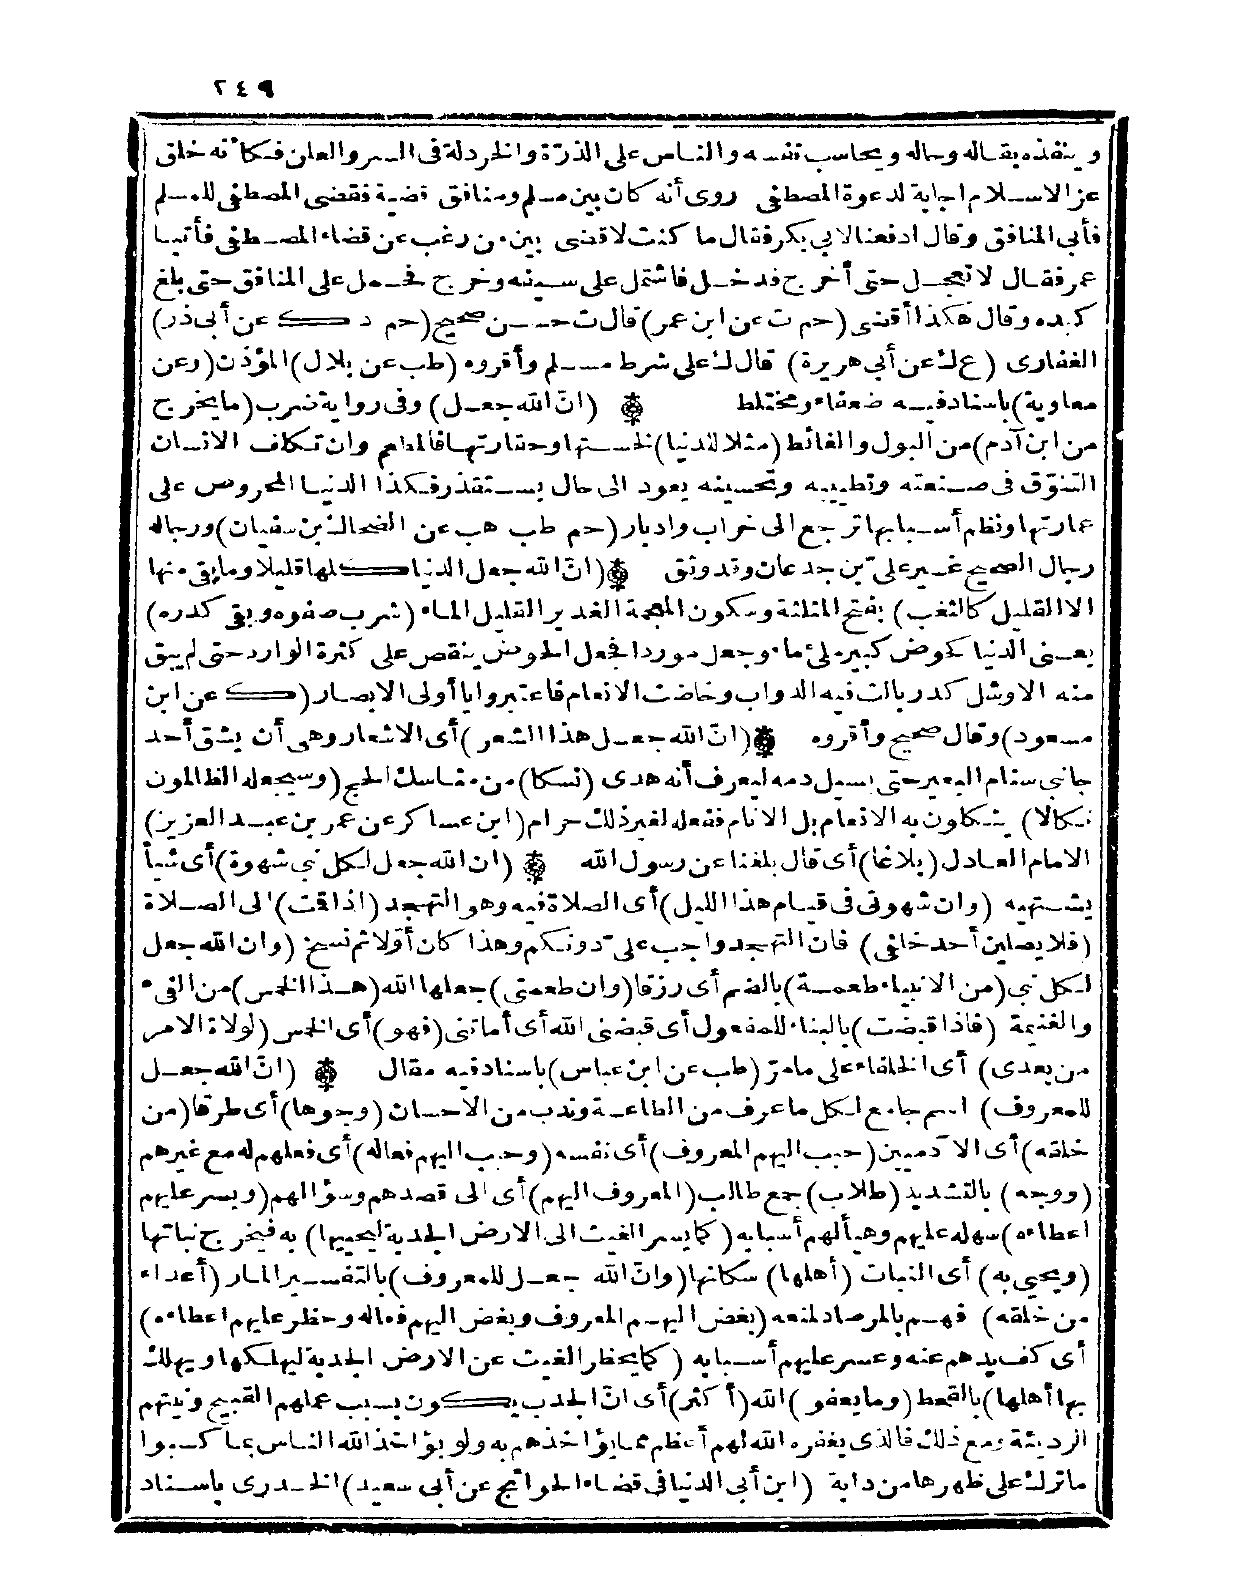 ٢٤٩
وينفذه بقاله وحاله ويحاسب نفسه والناس على الذرّة والخردلة فى السر والعلن فكأنه خلق
عز الاسلام اجابة لدعوة المصطفى روى أنه كان بين مسلم ومنافق قضية فقضى المصطفى للمسلم
فأبى المنافق وقال ادفعنا لابى بكر فقال ما كنت لاقضى بين من رغب عن قضاء المصطفى فأتيا
عمر فقال لا تعجل حتى أخرج فدخل فاشتمل على سيفه وخرج فحمل على المنافق حتى بلغ
كبده وقال هكذا أقضى (حم ت عن ابن عمر) قال ت حسن صحيح (حم د ك عن أبى ذر)
الغفارى (ع ك عن أبى هريرة) قال ك على شرط مسلم وأقروه (طب عن بلال) المؤذن (وعن
معاوية) باسناد فيه ضعفاء ومختلط (انّ الله جعل) وفى رواية ضرب (ما يخرج
من ابن آدم) من البول والغائط (مثلا للدنيا) لخستها وحقارتها فالمطعم وان تكلف الانسان
التنوّق فى صنعته وتطييبه وتحسينه يعود الى حال يستقذر فكذا الدنيا المحروص على
عمارتها ونظم أسبابها ترجع الى خراب وادبار (حم طب هب عن الضحاك بن سفيان) ورجاله
رجال الصحيح غير علىّ بن جدعان وقد وثق (انّ الله جعل الدنيا كلها قليلا وما بقى منها
الا القليل كالثغب) بفتح المثلثة وسكون المعجمة الغدير القليل الماء (شرب صفوه وبقى كدره)
يعنى الدنيا كحوض كبير ملئ ماء وجعل موردا فجعل الحوض ينقص على كثرة الوارد حتى لم يبق
منه الا وشل كدر بالت فيه الدواب وخاضت الانعام فاعتبروا يا أولى الابصار (ك عن ابن
مسعود) وقال صحيح وأقروه (انّ الله جعل هذا الشعر) أى الاشعار وهى أن يشق أحد
جانبى سنام البعير حتى يسيل دمه ليعرف أنه هدى (نسكا) من مناسك الحج (وسيجعله الظالمون
نكالا) ينكلون به الانعام بل الانام ففعله لغير ذلك حرام (ابن عساكر عن عمر بن عبد العزيز)
الامام العادل (بلاغا) أى قال بلغنا عن رسول الله (ان الله جعل لكل نبى شهوة) أى شيأ
يشتهيه (وان شهوتى فى قيام هذا الليل) أى الصلاة فيه وهو التهجد (اذا قمت) الى الصلاة
(فلا يصلين أحد خلفى) فان التهجد واجب علىّ دونكم وهذا كان أوّلا ثم نسخ (وان الله جعل
لكل نبى (من الانبياء طعمة) بالضم أى رزقا (وان طعمتى) جعلها الله (هذا الخمس) من الفىء
والغنيمة (فاذا قبضت) بالبناء للمفعول أى قبضنى الله أى أماتنى (فهو) أى الخمس (لولاة الامر
من بعدى) أى الخلفاء على ما مرّ (طب عن ابن عباس) باسناد فيه مقال (انّ الله جعل
للمعروف) اسم جامع لكل ما عرف من الطاعة وندب من الاحسان (وجوها) أى طرقا (من
خلقه) أى الآدميين (حبب اليهم المعروف) أى نفسه (وحبب اليهم فعاله) أى فعلهم له مع غيرهم
(ووجه) بالتشديد (طلاب) جمع طالب (المعروف اليهم) أى الى قصدهم وسؤالهم (ويسر عليهم
اعطاءه) سهله عليهم وهيأ لهم أسبابه (كما يسر الغيث الى الارض الجدبة ليحييها) به فيخرج نباتها
(ويحيى به) أى النبات (أهلها) سكانها (وانّ الله جعل للمعروف) بالتفسير المار (أعداء
من خلقه) فهم بالمرصاد لمنعه (بغض اليهم المعروف وبغض اليهم فعاله وحظر عليهم اعطاءه)
أى كف يدهم عنه وعسر عليهم أسبابه (كما يحظر الغيث عن الارض الجدبة ليهلكها ويهلك
بها أهلها) بالقحط (وما يعفو) الله (أكثر) أى انّ الجدب يكون بسبب عملهم القبيح ونيتهم
الرديئة ومع ذلك فالذى يغفره الله لهم أعظم مما يؤاخذهم به ولو يؤاخذ الله الناس بما كسبوا
ما ترك على ظهرها من دابة (ابن أبى الدنيا فى قضاء الحوائج عن أبى سعيد) الخدرى باسناد